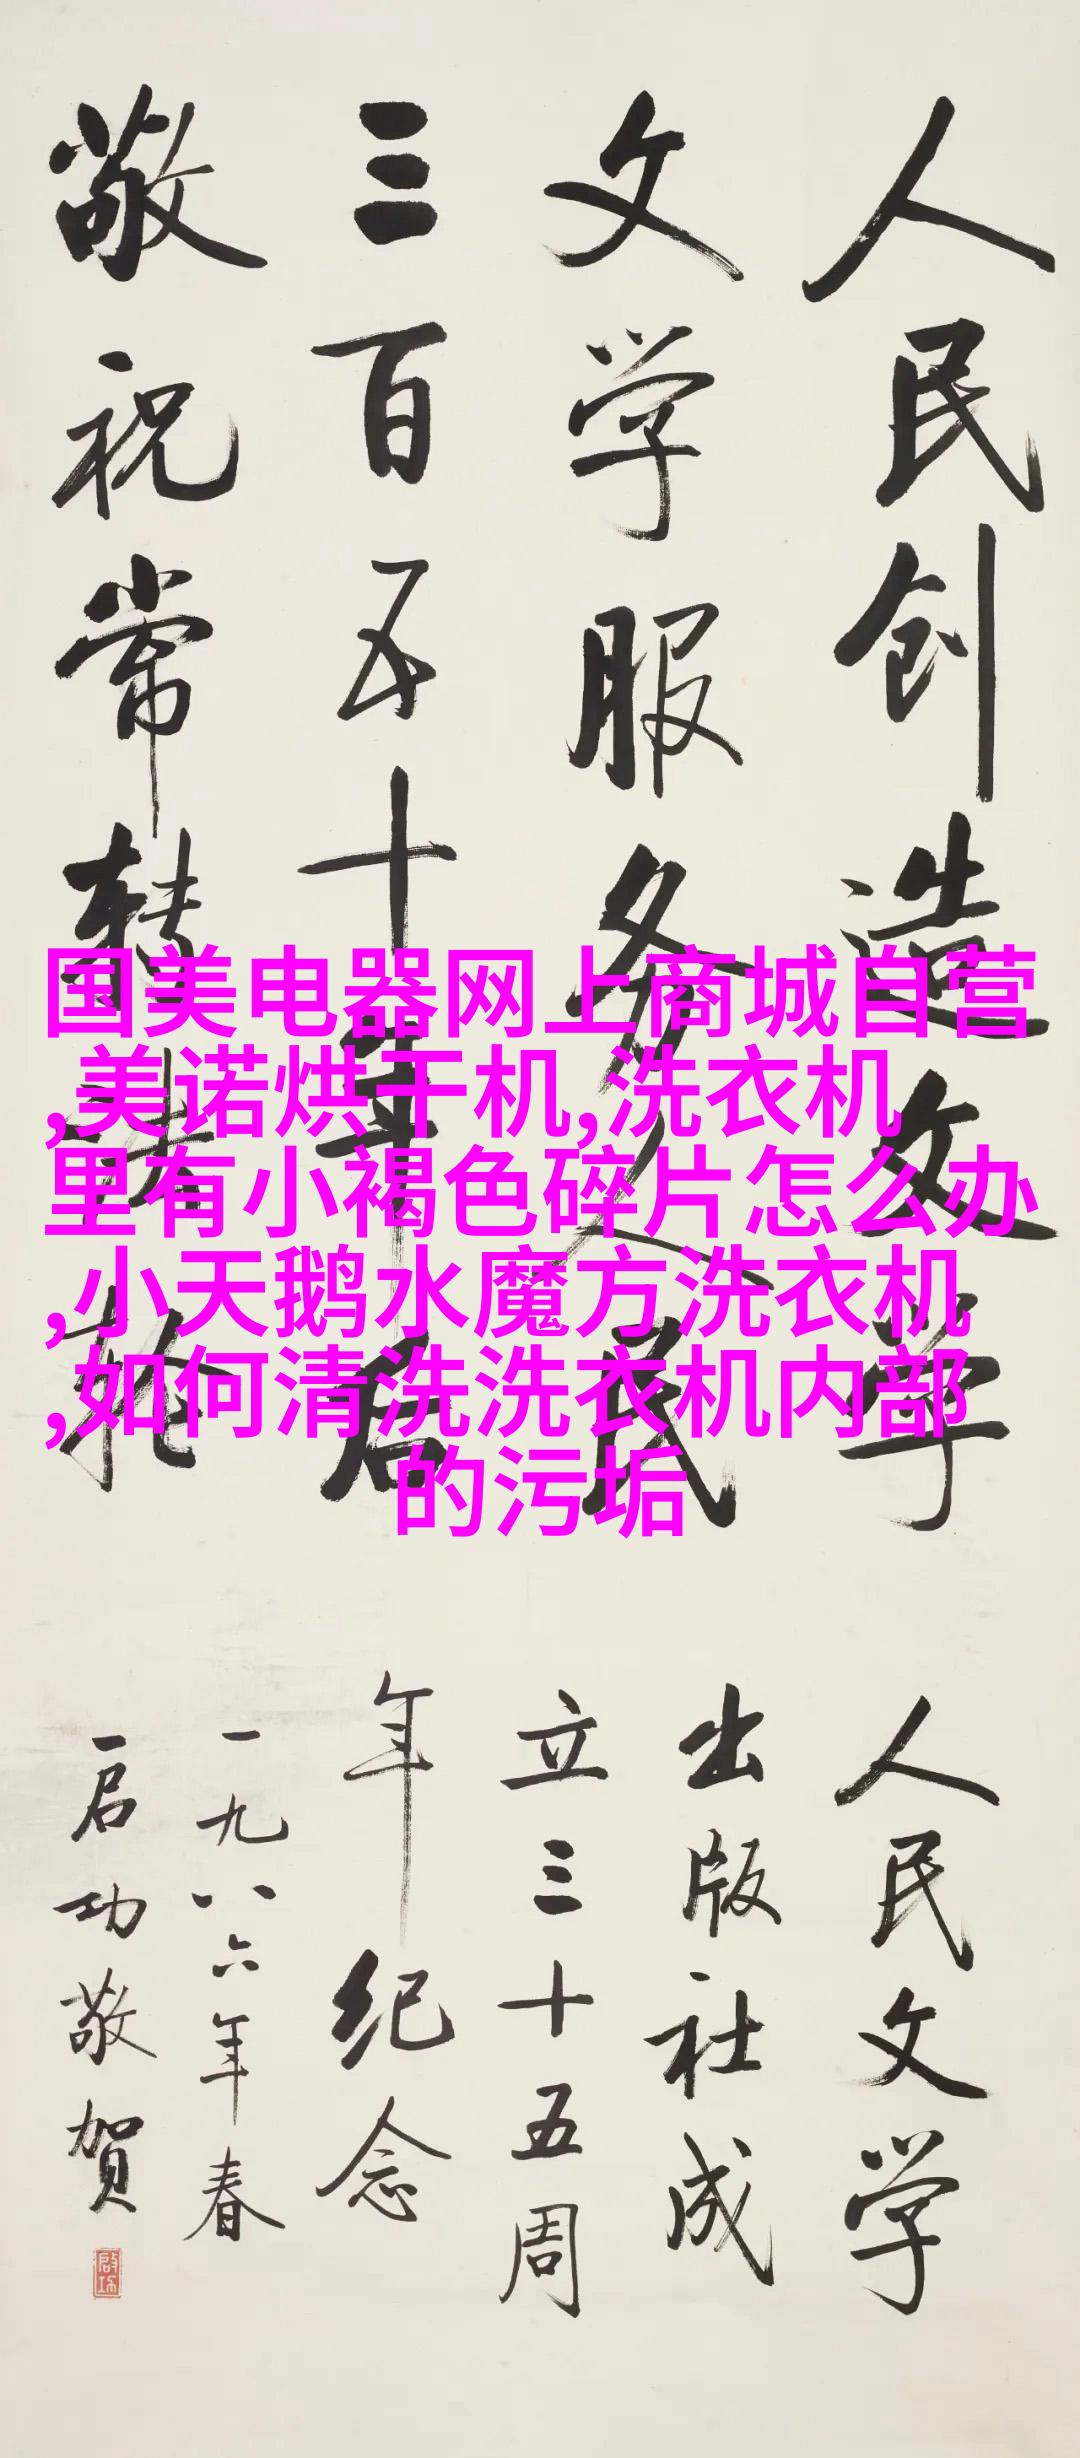 人民创造文学
文学服务人民
三百五十年后
敬祝常转法轮
国美电器网上商城自营
,美诺烘干机,洗衣机
里有小褐色碎片怎么办
,小天鹅水魔方洗衣机
,如何清洗洗衣机内部
的污垢
人民文学
出版社成
立三十五周
年纪念
一九八六年春
启功敬贺
启功